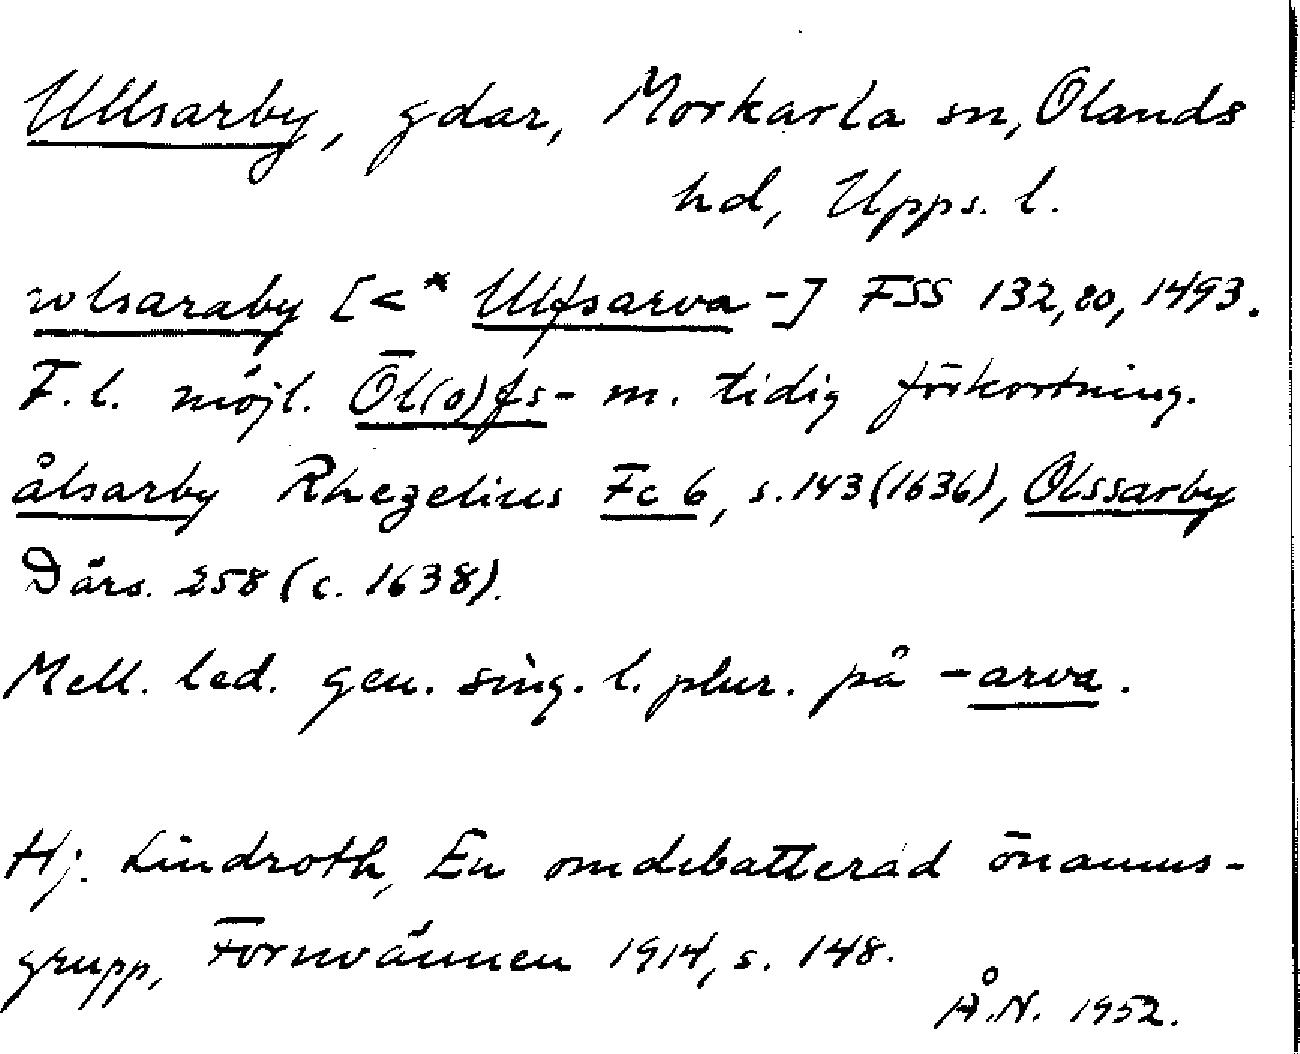 Ullsarby, gdar, Morkarla sn, Ölands
hd, Upps. l.
wlsaraby [<* Ulfsarva-] FSS 132, 20, 1493.
F. l. möjl. Ōl(o)fs- m. tidig förkortning.
ålsarby Rhezelius Fc 6, s. 143 (1636), Olssarby
Därs. 258 (c. 1638).
Mell. led. gen. sing. l. plur. på -arva.
Hj. Lindroth, En omdebatterad önamns-
grupp, Fornvännen 1914, s. 148.
Å.N. 1952.